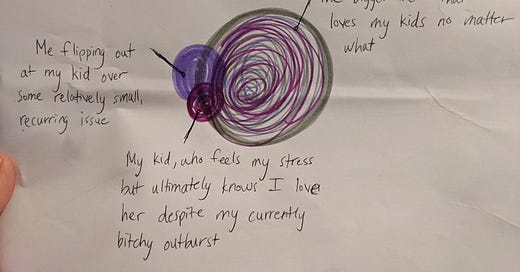 loves my kids no matter
what
Me flipping out
at my kid over
some relatively small,
recurring issue
My kid, who feels my stress
but ultimately knows I love
her despite my currently
bitchy outburst